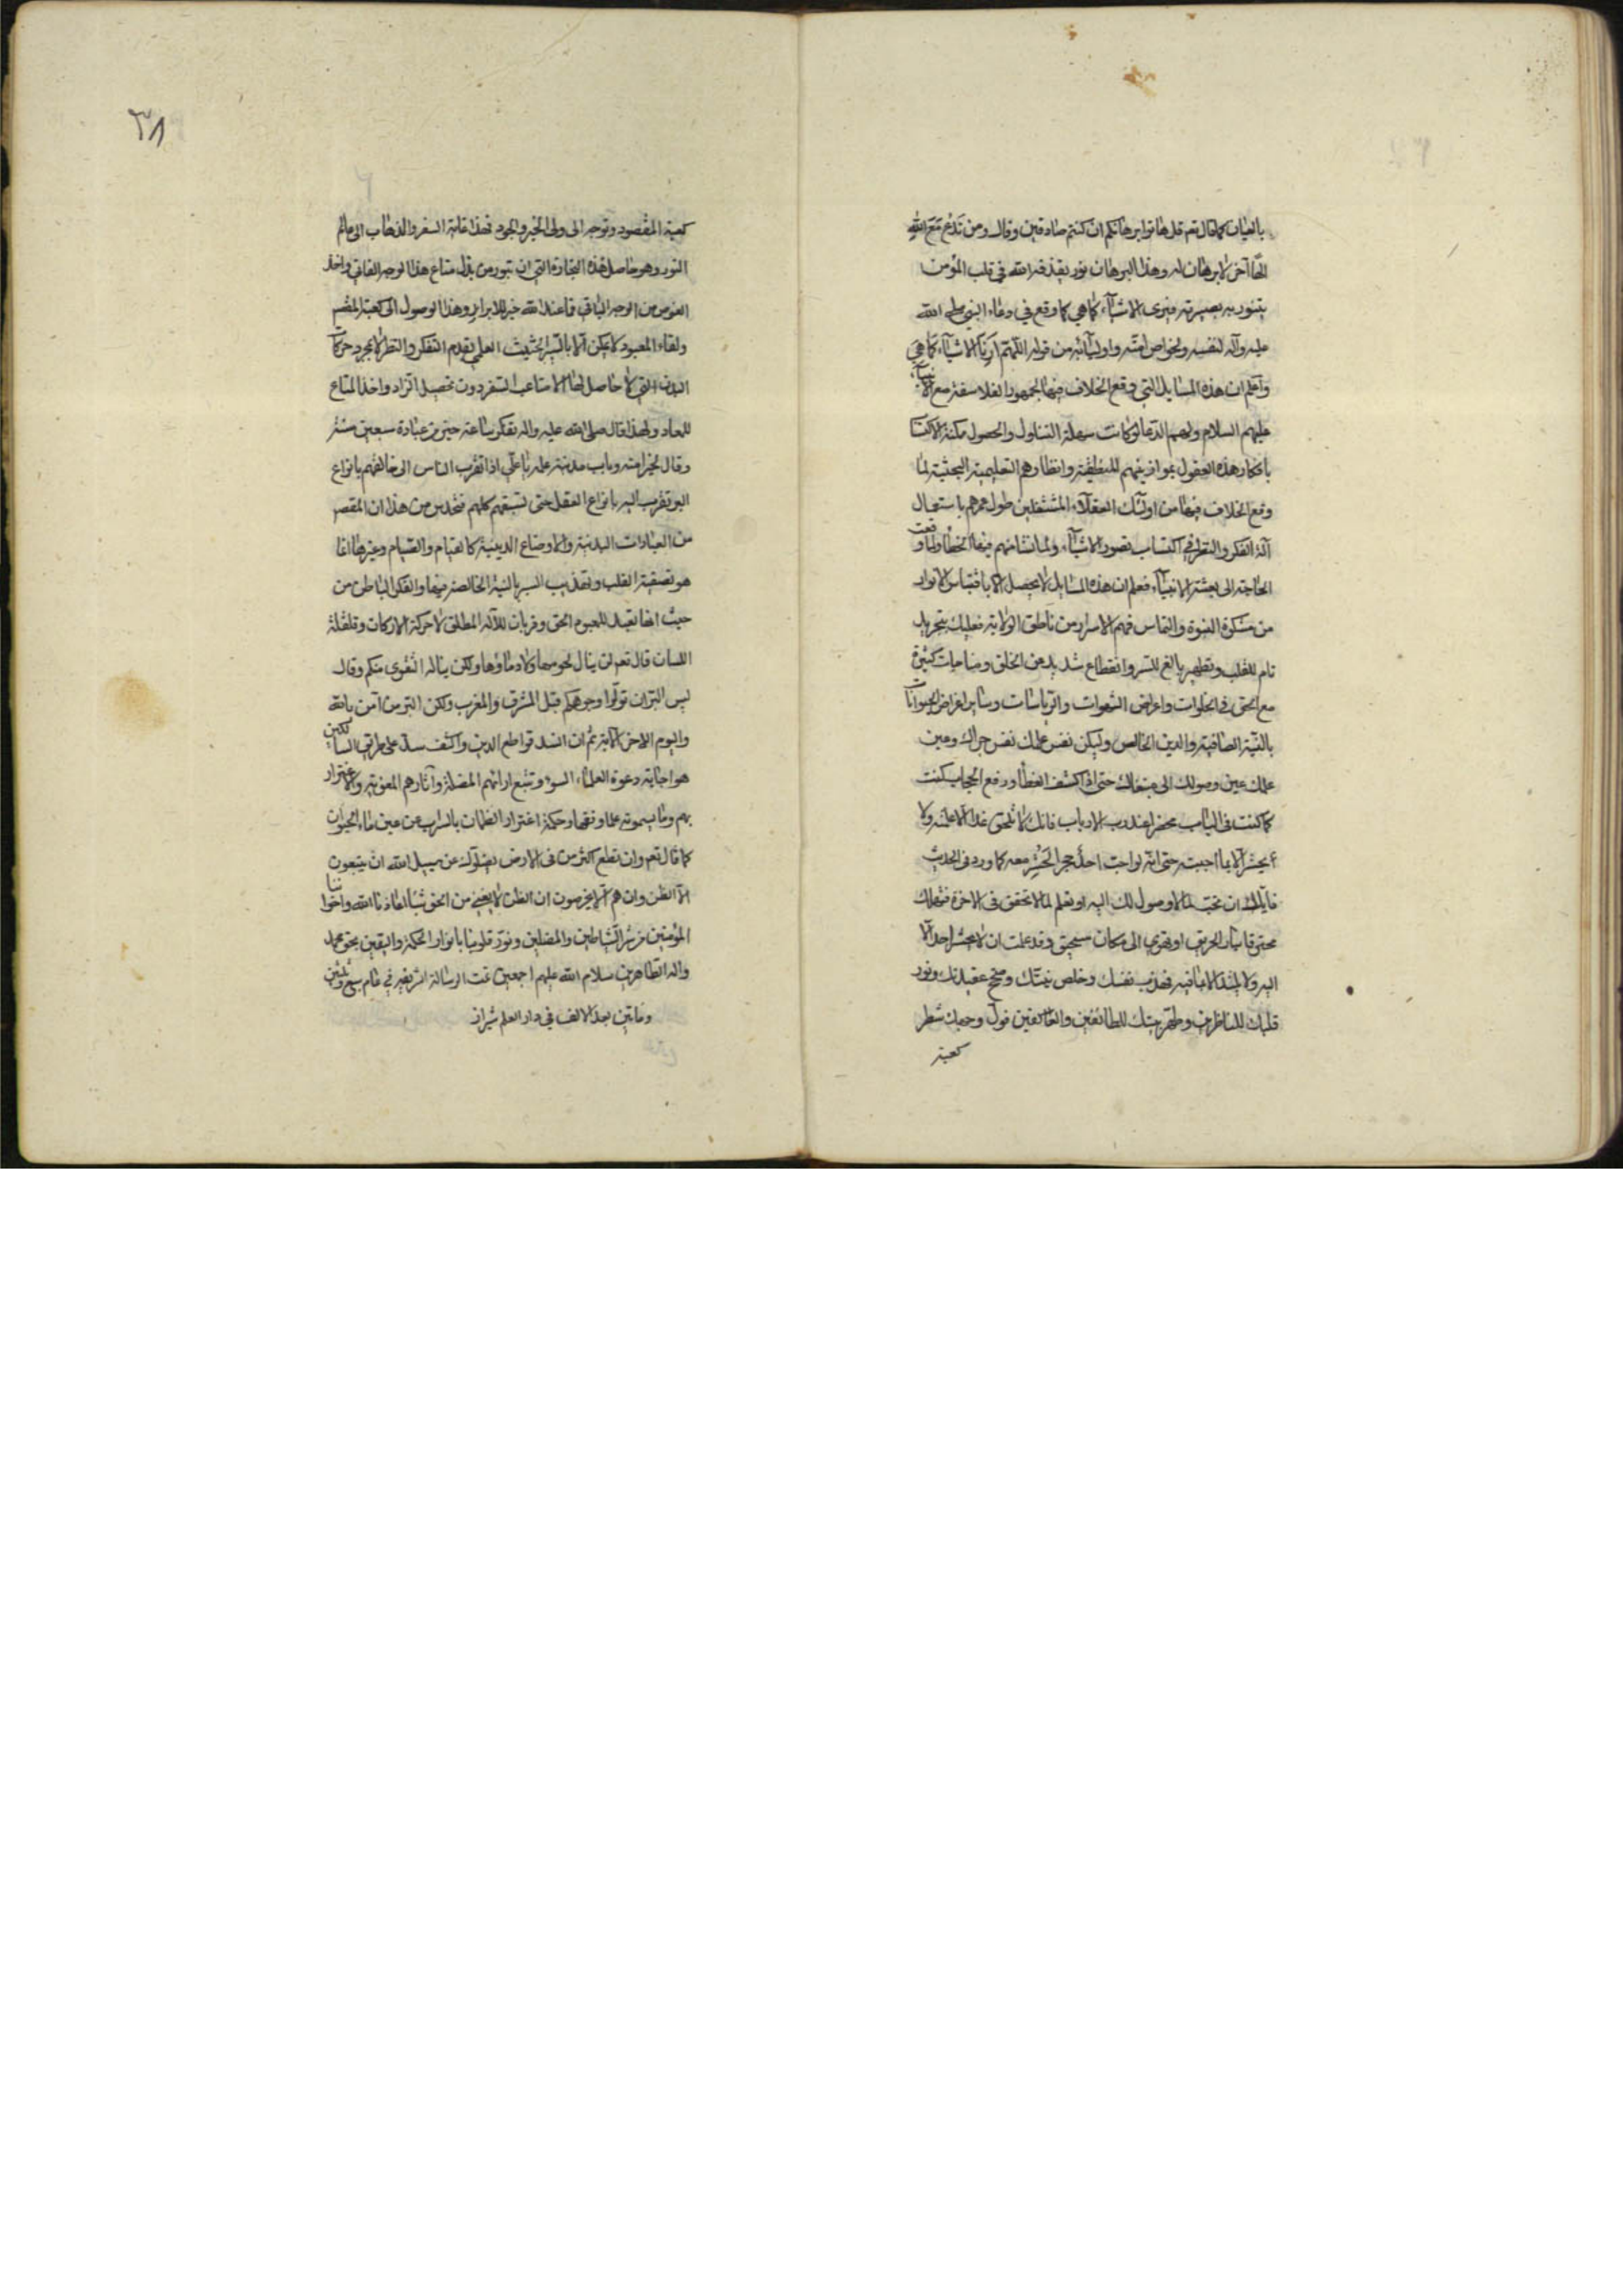 بالعيان كما قال تعم قل هاتوا برهانكم ان كنتم صادقين وقال ومن يَدْعُ مَعَ اللهِ
الٰهًا آخر لا برهان له وهذا البرهان نور يقذفه الله في قلب المؤمن
يتنور به بصيرته فيرى الاشيآء كما هي كما وقع في دعاء النبي صلى الله
عليه وآله لنفسه ولخواص امته واوليآئه من قوله اللهم اَرِنَا الاشيآء كَمَا هِيَ
واعلم ان هذه المسايل التي وقع الخلاف فيها لجمهور الفلاسفة مع الانبيآء
عليهم السلام ولهم الدعا لوكانت سهلة التناول والحصول مكنة الاكتسا
بافكار هذه العقول بموازينهم المنطقية وانظارهم التعليمية البحثية لما
وقع الخلاف فيها من اولئك العقلآء المشتغلين طول عمرهم باستعمال
آلة الفكر والنظر في اكتساب تصور الاشيآء ولما نشا منهم فيها الخطأ ولما وقعت
الحاجة الى بعثة الانبيآء فعلم ان هذه المسايل لا يحصل الا باقتباس الانوار
من مشكوة النبوة والتماس فهم الاسرار من ناطق الولاية فعليك بتجريد
تام للقلب وتطهير بالغ للسر وانقطاع شديد من الخلق ومناجات كثيرة
مع الحق في الخلوات واعراض الشهوات والرياسات وساير اغراض الحيوانا
بالنية الصافية والدين الخالص وليكن نفس عملك نفس جزائك وعين
علمك عين وصولك الى مبتغاك حتى اذا كشف الغطا ورفع الحجاب كنت
كما كنت في الباب محضرا عند رب الارباب فانك لا تلحق غدا الا علته ولا
يحشر الا بما احببته حتى انه لو احب احد حجر الحُشِر معه كما ورد في الحديث
فاياك ان تحب ما لا وصول لك اليه او تعلم لما لا تحقق في الاخرة فتهلك
اليه ولا يلتذ الا بما فيه فهذب نفسك وخلص نيتك وصحح عقيدتك ونور
قلبك للناظرين وطهر بيتك للطائفين والعاكفين فول وجهك شطر
كعبة
٣٨
كعبة المقصود وتوجه الى ولى الخير والجود فهذا غاية السفر والذهاب الى عالم
النور وهو حاصل هذه التجارة التي لن تبور من بذل متاع هذا الوجه الفاني واخذ
العوض من الوجه الباقي وما عند الله خير للابرار وهذا الوصول الى كعبة المقصم
ولقاء المعبود لا يمكن الا بالسير الحثيث العلمي بقدم التفكر والنظر لا بمجرد حركا
البدن التي لا حاصل لها الا متاعب السفر دون تحصيل الزاد واخذ المتاع
للمعاد ولهذا قال صلى الله عليه واله تفكر ساعة خير من عبادة سبعين سنة
وقال لخير امته وباب مدينة علمه يا علي اذا تقرب الناس الى خالقهم بانواع
البر تقرب اليه بانواع العقل حتى تسبقهم كلهم فتحدس من هذا ان المقصم
من العبادات البدنية والاوضاع الدينية كالقيام والصيام وغيرها انما
هو تصفية القلب وتهذيب السر بالنية الخالصة فيها والفكر الباطن من
حيث انها تعبد للمعبود الحق وقربان للاله المطلق لا حركة الاركان وقلقلة
اللسان قال تعم لن ينال لحومها ولا دماؤها ولكن يناله التقوى منكم وقال
ليس البر ان تولوا وجوهكم قبل المشرق والمغرب ولكن البر من آمن بالله
واليوم الاخر الاية ثم ان اشد قواطع الدين واكثف سد على طريق السالكين
هو اجابة دعوة العلماء السوء وتتبع ارائهم المضلة وآثارهم المغوية والاغترار
بهم وما يسمونه علما وفقها وحكمة اغترار الظمان بالسراب عن عين ماء الحيوان
كما قال تعم وان تطع اكثر من في الارض يضلوك عن سبيل الله ان يتبعون
الا الظن وان هم الا يخرصون ان الظن لا يغني من الحق شيئا اعاذنا الله واخواننا
المؤمنين من شر الشياطين والمضلين ونور قلوبنا بانوار الحكمة واليقين بحق محمد
واله الطاهرين سلام الله عليهم اجمعين تمت الرسالة الشريفة في عام سبع وثلثين
ومأتين بعد الالف في دار العلم شيراز